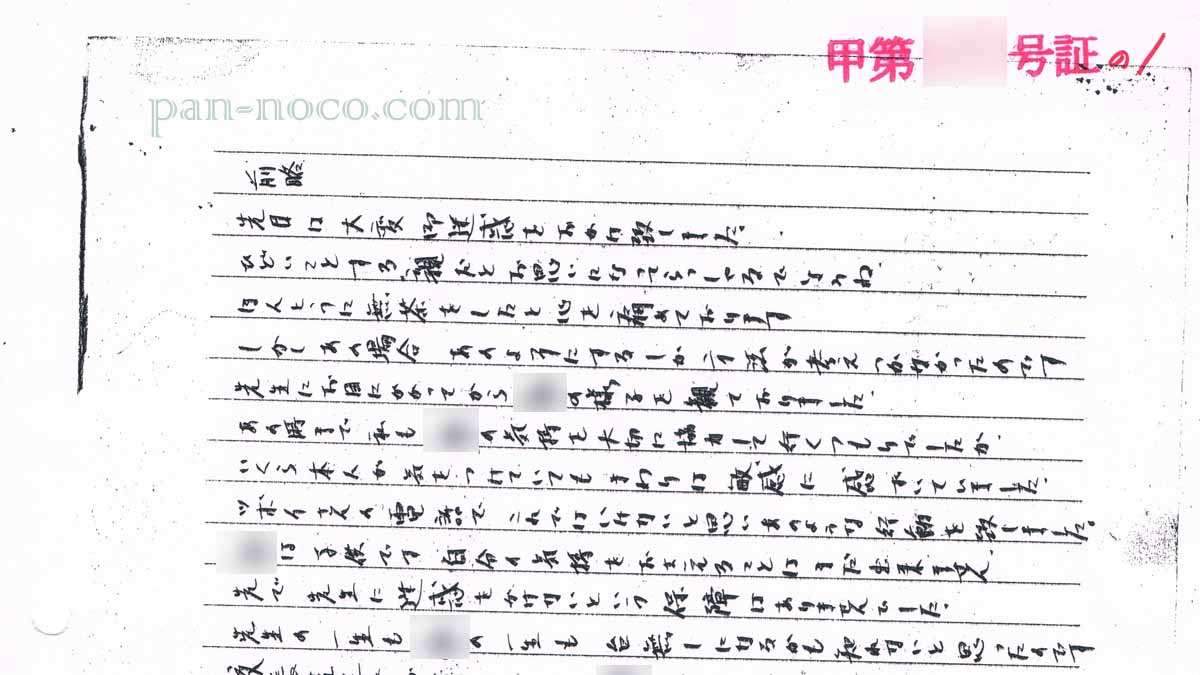 甲第 号証 の1
pan-noco.com
前略
先日は大変御迷惑をおかけ致しました。
ひどいことをする親だとお思いになってらっしゃるでしょうね
ほんとうに無茶をしたと心を痛めております
しかしあの場合 あのようにするしか方法が考えつかなかったのです
先生にお目にかかってから の様子を観ておりました。
あの時まで私も の気持を大切に協力して行くつもりでしたが、
いくら本人が気をつけていてもまわりは敏感に感づいていました。
ツボイさんの電話で これではいけないと思いあのような行動を致しました。
は子供です 自分の気持をおさえることはまだ出来ません
先で先生に迷惑をかけないという保障はありませんでした。
先生の一生も の一生も台無しになるかも知れないと思ったのです